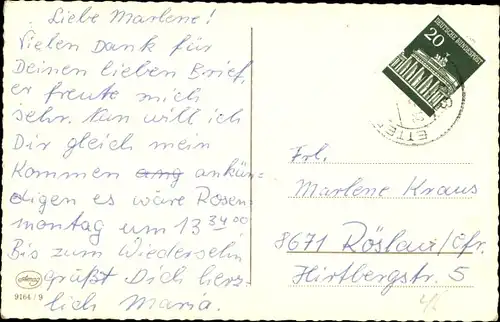 Liebe Marlene!
Vielen Dank für
Deinen lieben Brief,
er freute mich
sehr. Nun will ich
Dir gleich mein
Kommen ang ankün-
digen es wäre Rosen-
montag um 13 34 00
Bis zum Wiedersehn
grüßt Dich herz-
lich Maria.
9164/9
20
DEUTSCHE BUNDESPOST
Frl.
Marlene Kraus
8671 Röslau/Ofr.
Hirtbergstr. 5